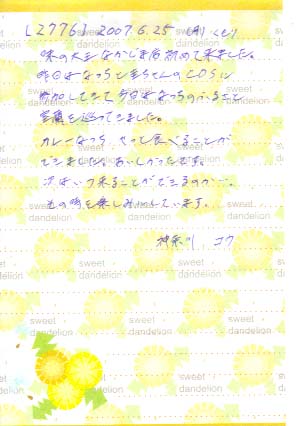 [2776] 2007.6.25 (月) くもり
味の大王なかじま店初めて来ました。
昨日はなっちと圭ちゃんのCDSに
参加してきて今日はなっちのふるさと
室蘭を巡ってきました。
カレーなっち やっと食べることが
できました。おいしかったです。
次はいつ来ることができるのか…。
その時を楽しみにしています。
神奈川 コウ
sweet
dandelion
sweet
dandelion
sweet
dandelion
sweet
dandelion
sweet
dandelion
sweet
dandelion